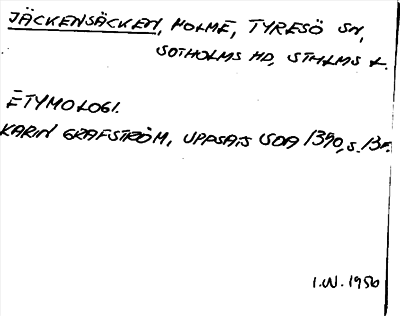 JÄCKENSÄCKEN, HOLME, TYRESÖ SN,
SOTHOLMS HD, STHLMS L.
ETYMOLOGI.
KARIN GRAFSTRÖM, UPPSATS 1390, S. 13F.
I.W. 1956